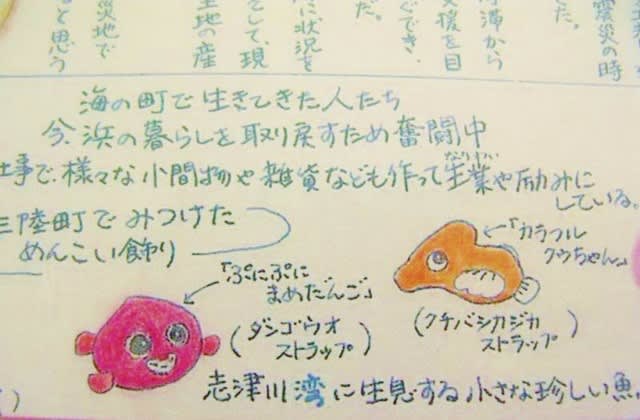 震災の時
た。
から
援を目
ぐでき、
だ。
に状況を
して、現
地の産
災地で
ると思う
海の町で生きてきた人たち
今、浜の暮らしを取り戻すため奮闘中
仕事で、様々な小間物や雑貨なども作って生業や励みに
なりわい
している。
三陸町でみつけた
めんこい飾り
「ぷにぷに
まめだんご」
(ダンゴウオ
ストラップ)
「カラフル
クウちゃん」
(クチバシカジカ
ストラップ)
志津川湾に生息する小さな珍しい魚